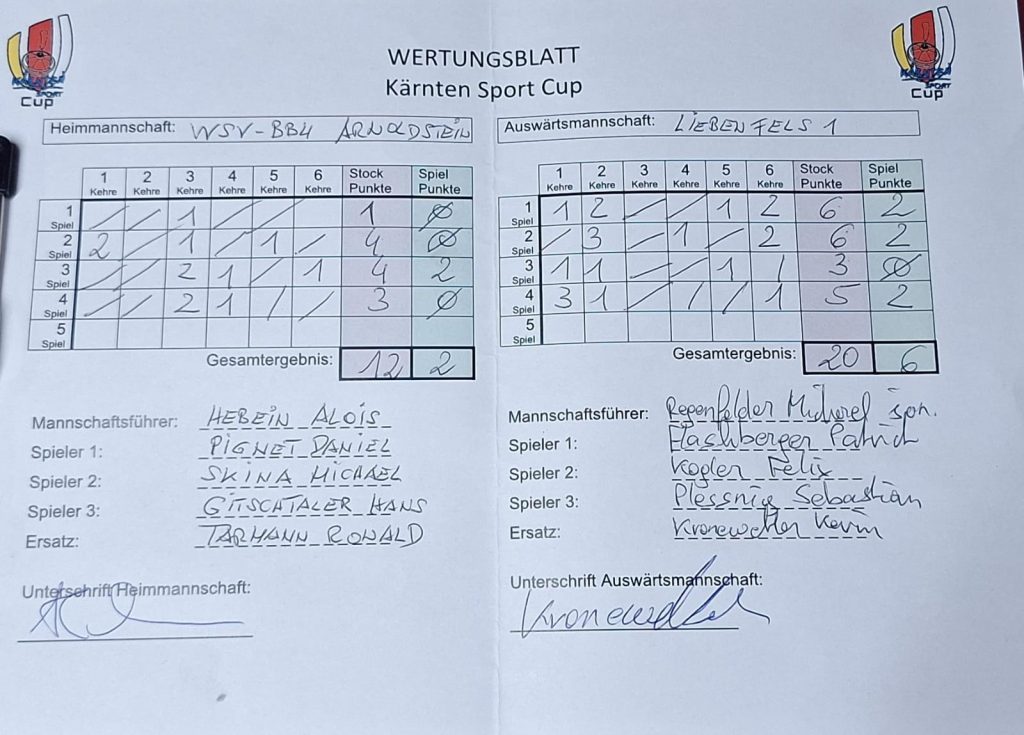 WERTUNGSBLATT
Kärnten Sport Cup
CUP
CUP
Heimmannschaft: WSV-BB4 ARNOLDSTEIN
1 Kehre 2 Kehre 3 Kehre 4 Kehre 5 Kehre 6 Kehre Stock Punkte Spiel Punkte
1 Spiel / / 1 / / 1 Ø
2 Spiel 2 / 1 / 1 / 4 Ø
3 Spiel / / 2 1 / 1 4 2
4 Spiel / / 2 1 / / 3 Ø
5 Spiel
Gesamtergebnis: 12 2
Mannschaftsführer: HEBEIN ALOIS
Spieler 1: PIGNET DANIEL
Spieler 2: SKINA MICHAEL
Spieler 3: GITSCHTALER HANS
Ersatz: TARMANN RONALD
Unterschrift Heimmannschaft:
Auswärtsmannschaft: LIEBENFELS 1
1 Kehre 2 Kehre 3 Kehre 4 Kehre 5 Kehre 6 Kehre Stock Punkte Spiel Punkte
1 Spiel 1 2 / / 1 2 6 2
2 Spiel / 3 / 1 / 2 6 2
3 Spiel 1 1 / / 1 / 3 Ø
4 Spiel 3 1 / / / 1 5 2
5 Spiel
Gesamtergebnis: 20 6
Mannschaftsführer: Regenfelder Michael jun.
Spieler 1: Flashberger Patrick
Spieler 2: Kogler Felix
Spieler 3: Plessnig Sebastian
Ersatz: Kronewetter Kevin
Unterschrift Auswärtsmannschaft: